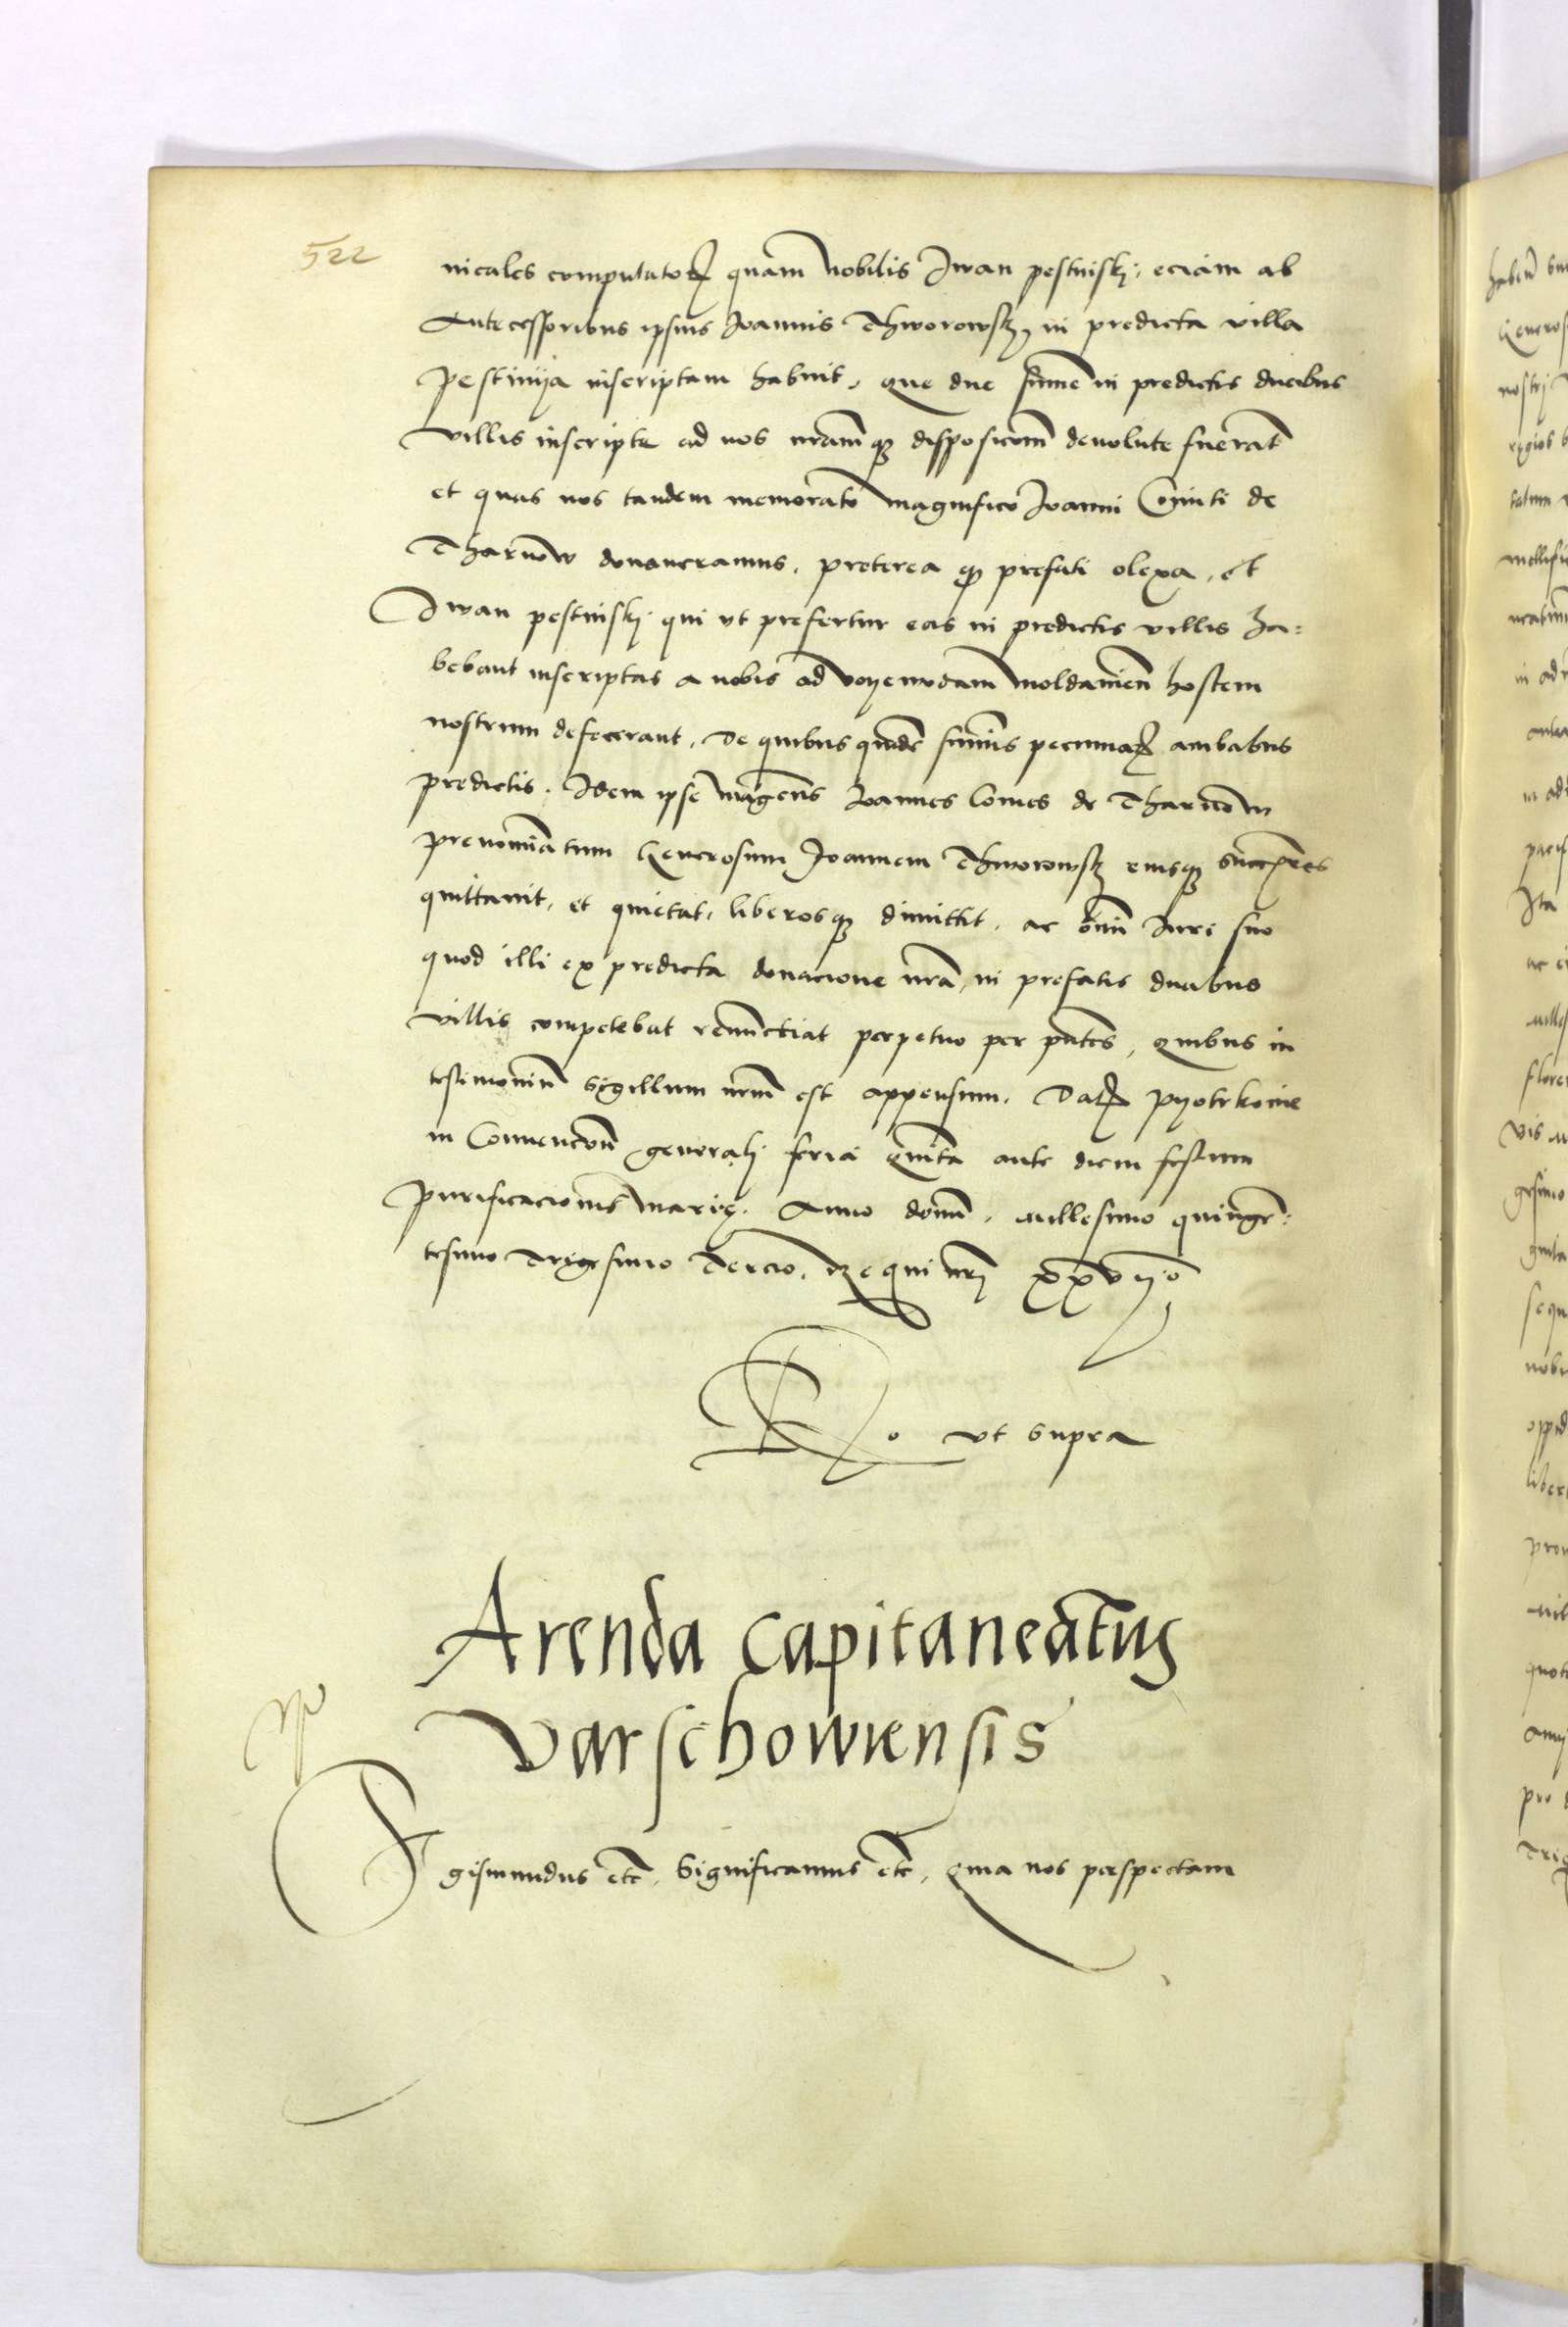 522
nicales computatoꝝ quam Nobilis Iwan pestniskj, eciam ab
Antecessoribus ipsius Ioannis Thworowskj, in predicta villa
Pestinija inscriptam habuit. Que due sume in predictis duabus
villis inscripte ad nos nramqꝫ disposicōm devolute fuerant
et quas nos tandem memorato Magnifico Ioanni Comiti de
Tharnow donaveramus. preterea qꝫ prefati olexa, et
Iwan pestniskj qui vt prefertur eas in predictis villis ha=
bebant inscriptas a nobis ad voyevodam Moldavieñ hostem
nostrum defecerant. De quibus quidē summis pecuniaꝝ ambabus
predictis. Idem ipse Magcūs Ioannes Comes de Tharnow
prenominatum Generosum Joannem Thworowskj eiusqꝫ succes̄ores
quittavit, et quietat, liberosqꝫ dimittit. ac omī Iuri suo
quod illi ex predicta donacione nrā, in prefatis duabus
villis competebat renunctiat perpetuo per pn̄tes, quibus in
testimoniū Sigillum nrm̄ est appensum. Datꝫ Pyotrkovie
in Conventōn generalj feria Quinta ante diem festum
Purificacionis Marię. Anno domī. Millesimo quingē=
tesimo Trigesimo Tercio. Regni nrj xxvijº
Rº vt supra
Arenda Capitaneatus
Varschowiensis
Sigismundus etc̄. Significamus etc̄. Quia nos perspectam